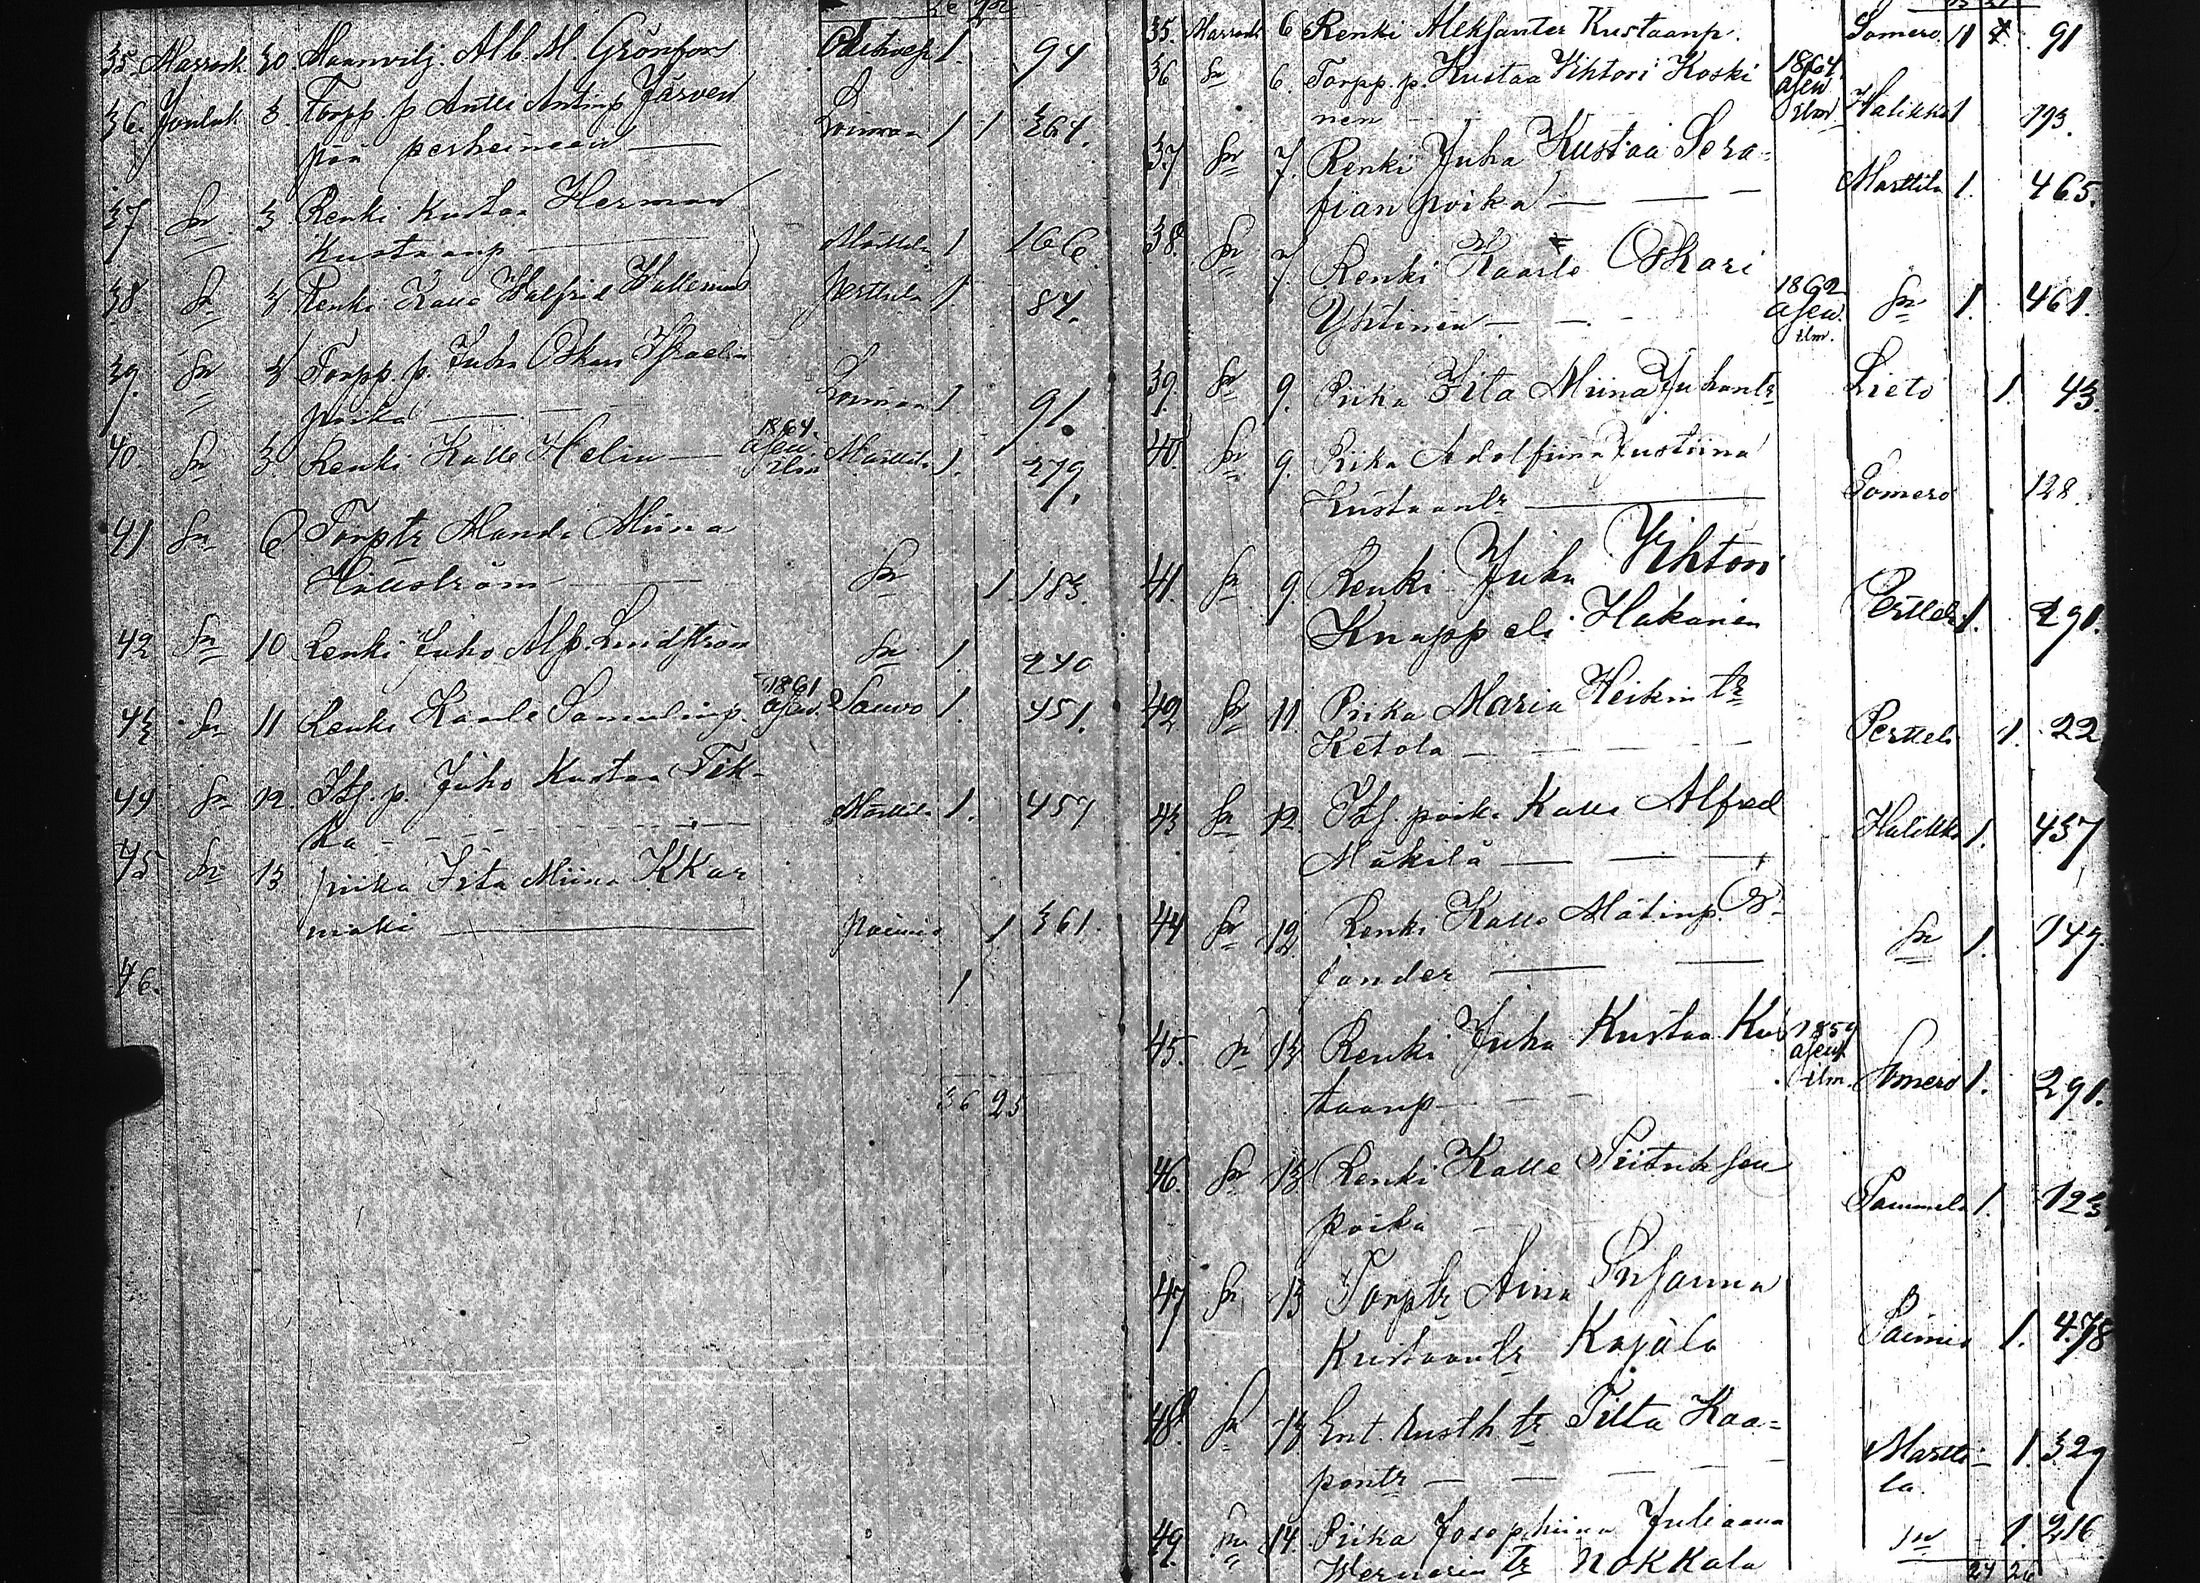 35. Marrask 30 Maanvilj. Alb. M. Grönfors 1. 94
36. Jouluk 3. Torpp. p Antti Antinp Järven
pää perheineen — Loimaa 1 1 364.
37 Sn 3 Renki Kustaa Herman
Kustaanp — Marttila 1 166
38. Sn 3 Renki Kalle Walfrid Pertteli 1 84.
39. Sn 3 Torpp. p. Juho Oskar Israelin
poika — Loimaa 1. 91.
40. Sn 3 Renki Kalle Helin — 1864 asev. ilm Marttila 1. 379.
41 Sn 6 Torptr Manda Miina
Hällström — Sn 1. 183.
42 Sn 10 Renki Juho Alf. Lindström Sn 1. 240
43 Sn 11 Renki Kaarle Samulinp. 1861 asev. Sauvo 1. 451.
44 Sn 12. Its. p. Juho Kustaa Tik-
ka — Marttila 1. 459
45 Sn 13 piika Iita Miina
mäki — Paimio 1 361.
46. 1.
36 25
35. Marrask 6 Renki Aleksanter Kustaanp. Somero 1 91
36 Sn 6. Torpp. p. Kustaa Vihtori Koski
nen 1864 asev. ilm Halikko 1 193.
37 Sn 7. Renki Juha Kustaa Sera-
fian poika — Marttila 1. 465.
38. Sn 7. Renki Kaarlo Oskari
Yhtinen — 1862 asev. ilm. Sn 1. 461.
39. Sn 9. Piika Iita Miina Juhantr Lieto 1. 43.
40 Sn 9. Piika Adolfiina Justiina
Kustaantr — Somero 128.
41. Sn 9. Renki Juha Vihtori
Knappeli Hakanen Pertteli 1. 291.
42. Sn 11. Piika Maria Heikintr
Ketola — Pertteli 1. 22
43 Sn 12. Its. poika Kalle Alfred
Mäkilä — Halikko 1. 437
44 Sn 12. Renki Kalle Matinp.
lander — Sn 1. 149.
45. Sn 13 Renki Juha Kustaa Kus
taanp — 1859 asev. ilm. Somero 1. 291.
46. Sn 13 Renki Kalle Piitriksen
poika — Tammela 1. 123
47 Sn 13 Torptr Aina Susanna
Kustaantr Kajala Paimio 1. 478
48. Sn 13 Ent. tr Tilta Kaa-
pontr — Martti-
la. 1 329
49. Sn 14. Piika Josephiina Juliaana
Hermanintr Nokkala Sn 1. 216
24 26